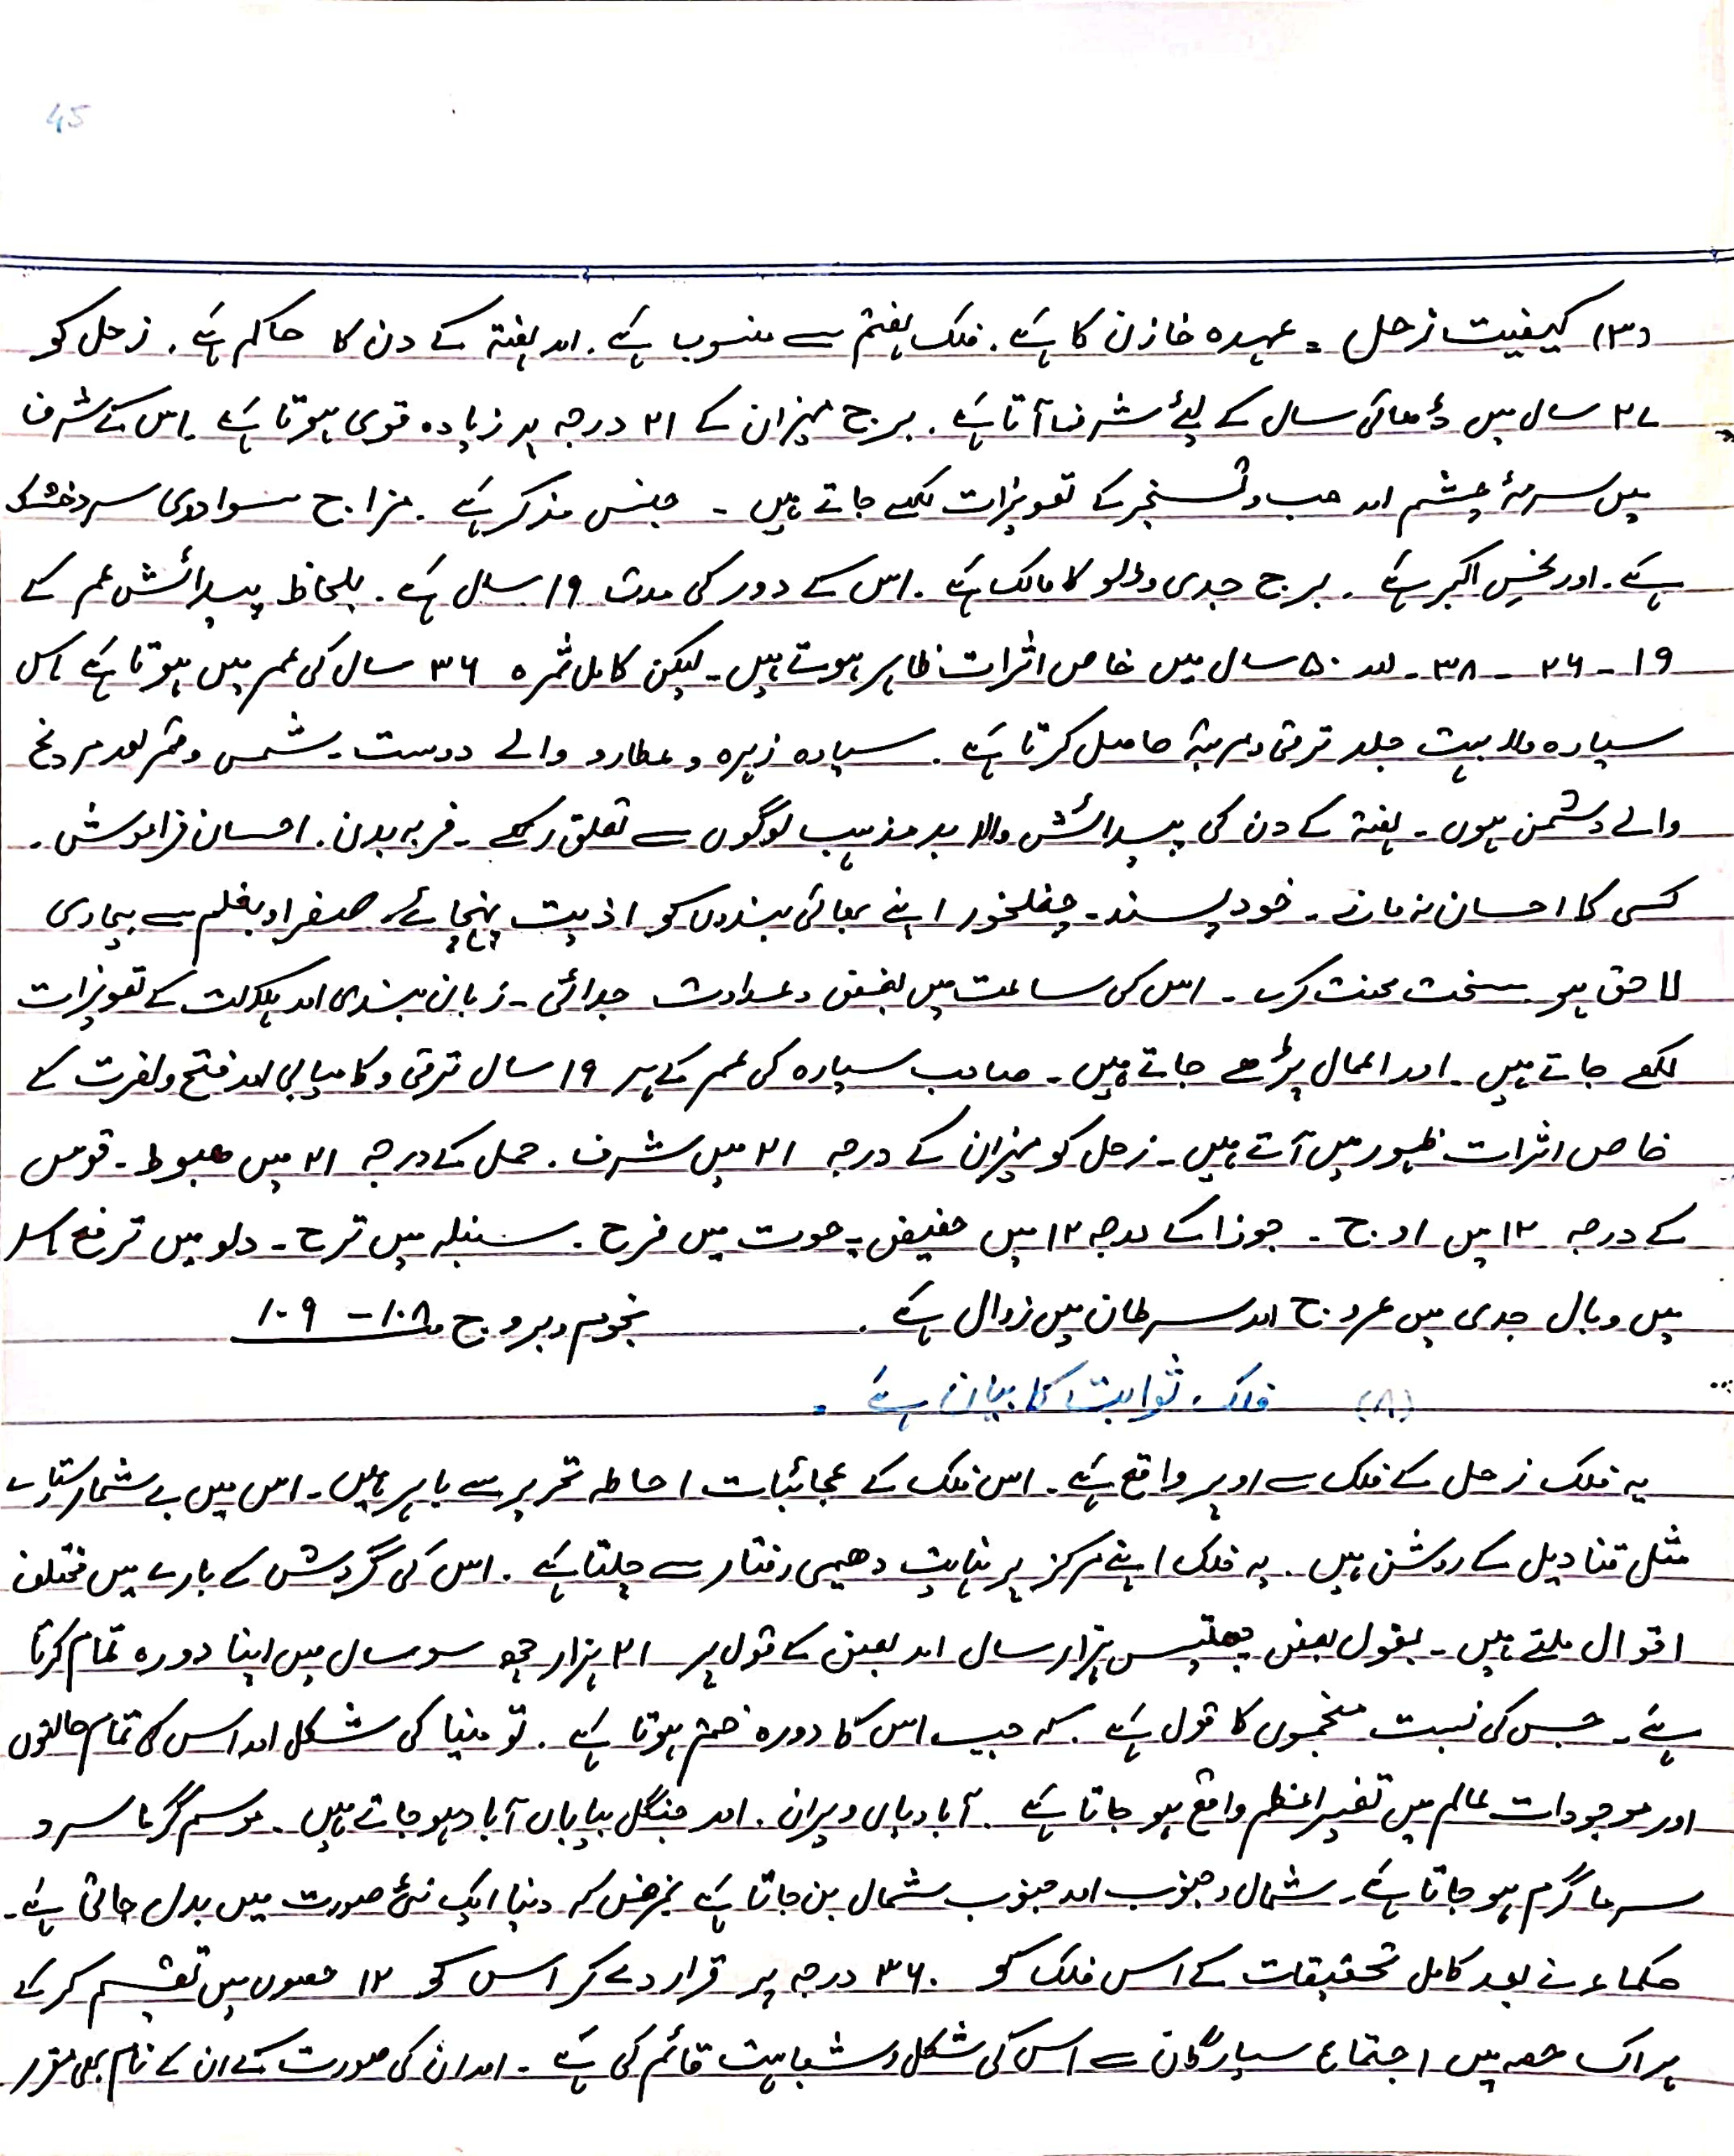 45
(۳) کیفیت زحل = عہدہ خازن کا ہے۔ فلک ہفتم سے منسوب ہے۔ اور ہفتہ کے دن کا حاکم ہے۔ زحل کو
۲۷ سال میں ڈھائی سال کے لئے شرف آتا ہے۔ برج میزان کے ۲۱ درجہ پر زیادہ قوی ہوتا ہے۔ اس کے شرف
میں سرمۂ چشم اور حب و تسخیر کے تعویزات لکھے جاتے ہیں۔ جنس مذکر ہے۔ مزاج سوادوی سرد خشک
ہے۔ اور نحس اکبر ہے۔ برج جدی و دلو کا مالک ہے۔ اس کے دور کی مدت ۱۹ سال ہے۔ بلحاظ پیدائش عمر کے
۱۹ - ۲۶ - ۳۸ - اور ۵۰ سال میں خاص اثرات ظاہر ہوتے ہیں۔ لیکن کامل ثمرہ ۳۶ سال کی عمر میں ہوتا ہے اس
سیارہ والا بہت جلد ترقی و مرتبہ حاصل کرتا ہے۔ سیارہ زہرہ و عطارد والے دوست۔ شمس و قمر اور مریخ
والے دشمن ہوں۔ ہفتہ کے دن کی پیدائش والا بد مذہب لوگوں سے تعلق رکھے۔ فربہ بدن۔ احسان فراموش۔
کسی کا احسان نہ مانے۔ خود پسند۔ چغلخور اپنے بھائی بندوں کو اذیت پہنچائے۔ صفرا و بلغم سے بیماری
لاحق ہو سخت محنت کرے۔ اس کی ساعت میں بغض و عداوت جدائی۔ زبان بندی اور ہلاکت کے تعویزات
لکھے جاتے ہیں۔ اور اعمال پڑھے جاتے ہیں۔ صاحب سیارہ کی عمر کے ہر ۱۹ سال ترقی و کامیابی اور فتح و نصرت کے
خاص اثرات ظہور میں آتے ہیں۔ زحل کو میزان کے درجہ ۲۱ میں شرف۔ حمل کے درجہ ۲۱ میں ہبوط۔ قوس
کے درجہ ۱۲ میں اوج۔ جوزا کے درجہ ۱۲ میں حضیض۔ حوت میں فرح۔ سنبلہ میں ترح۔ دلو میں ترفع اسد
میں وبال جدی میں عروج اور سرطان میں زوال ہے۔ نجوم و بروج ص ۱۰۸ - ۱۰۹
(۸) فلک ثوابت کا بیان ہے۔
یہ فلک زحل کے فلک سے اوپر واقع ہے۔ اس فلک کے عجائبات احاطہ تحریر سے باہر ہیں۔ اس میں بے شمار ستارے
مثل قنادیل کے روشن ہیں۔ یہ فلک اپنے مرکز پر نہایت دھیمی رفتار سے چلتا ہے۔ اس کی گردش کے بارے میں مختلف
اقوال ملتے ہیں۔ بقول بعض چھتیس ہزار سال اور بعض کے قول پر ۲۱ ہزار چھ سو سال میں اپنا دورہ تمام کرتا
ہے۔ جس کی نسبت منجموں کا قول ہے۔ کہ جب اس کا دورہ ختم ہوتا ہے۔ تو دنیا کی شکل اور اس کی تمام حالتوں
اور موجودات عالم میں تغیر اعظم واقع ہو جاتا ہے۔ آبادیاں ویران۔ اور جنگل بیاباں آباد ہو جاتے ہیں۔ موسم گرما سرد
سرما گرم ہو جاتا ہے۔ شمال و جنوب اور جنوب شمال بن جاتا ہے غرض کہ دنیا ایک نئی صورت میں بدل جاتی ہے۔
حکماء نے بعد کامل تحقیقات کے اس فلک کو ۳۶۰ درجہ پر قرار دے کر اس کو ۱۲ حصوں میں تقسیم کر کے
ہر اک حصہ میں اجتماع سیارگان سے اس کی شکل و شباہت قائم کی ہے۔ اور ان کی صورت کے ان کے نام بھی مقرر